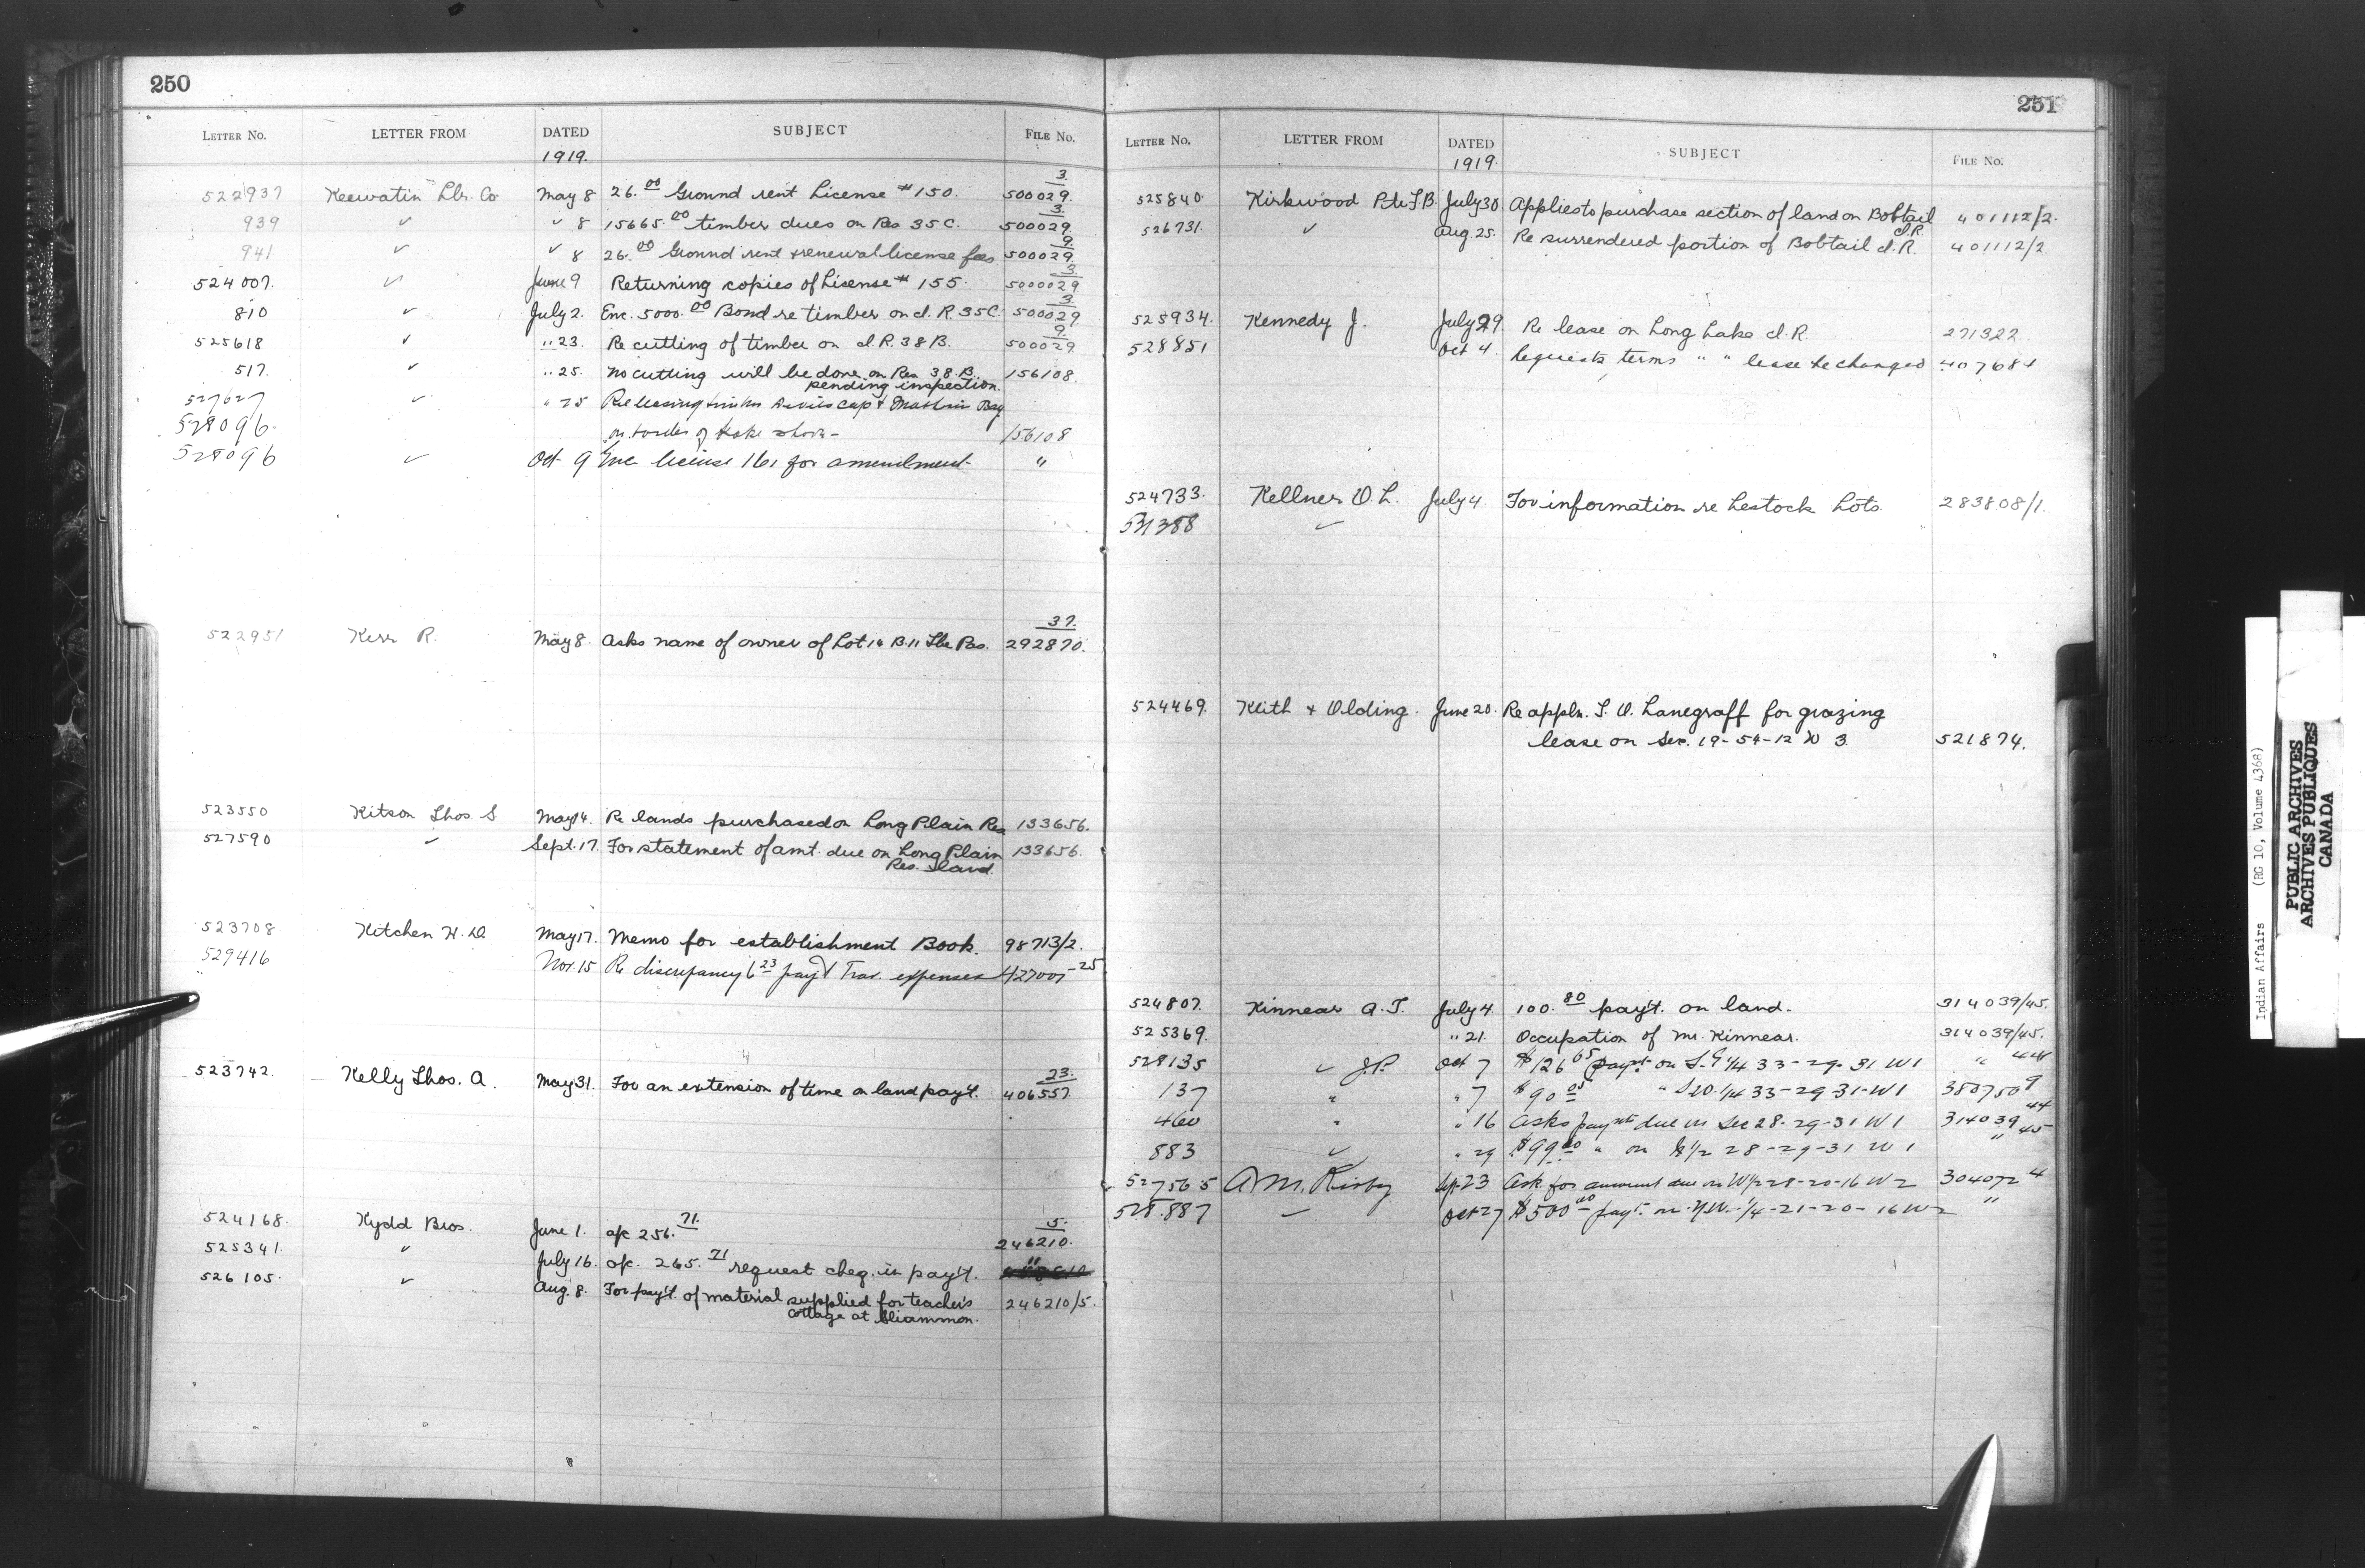 250
LETTER No. LETTER FROM DATED SUBJECT FILE No.
1919.
522937 Keewatin Lbr. Co May 8 26.00 Ground rent License #150. 500029. 3.
939 ✓ ✓ 8 15665.00 timber dues on Res 35C. 500029. 3.
941 ✓ ✓ 8 26.00 Ground rent & renewal license fees 500029. 9.
524007. ✓ June 9 Returning copies of License # 155. 5000029 3.
810 ✓ July 2. Enc. 5000.00 Bond re timber on I.R. 35C. 500029. 3.
525618 ✓ " 23. Re cutting of timber on I.R. 38B. 500029 9.
517. ✓ " 25. No cutting will be done on Res 38.B. 156108.
pending inspection.
527627 ✓ " 25 Re leasing timber Devils cap & Bay
on border of Lake shore - 156108
528096.
528096 ✓ Oct 9 Enc license 161 for amendment "
522951 Kerr R. May 8. Asks name of owner of Lot 14 B.11 The Pas. 292870. 37.
523550 Kitson Thos. S May 14. Re lands purchased on Long Plain Res 133656.
527590 ✓ Sept. 17. For statement of amt. due on Long Plain 133656.
Res. land.
523708 Kitchen H. D. May 17. Memo for establishment Book. 98713/2.
529416 Nov. 15 Re discrepancy 6 23 pay & Trav. expenses 427001-25
523742. Kelly Thos. A. May 31. For an extension of time on land pay't. 406557. 23.
524168. Kydd Bros. June 1. a/c 256.71. 246210. 5.
525341. ✓ July 16. a/c. 265.71 request cheq. in pay't. "
526105. ✓ Aug. 8. For pay't. of material supplied for teacher's 246210/5.
cottage at Sliammon.
251
LETTER No. LETTER FROM DATED SUBJECT FILE No.
1919.
525840. Kirkwood Pte F.B. July 30. Applies to purchase section of land on Bobtail 401112/2.
I.R.
526731. ✓ Aug. 25. Re surrendered portion of Bobtail I.R. 401112/2.
525934. Kennedy J. July 29. Re lease on Long Lake I.R. 271322.
528851 Oct 4. Requests terms " " lease be changed 407684
524733. Kellner O. L. July 4. For information re Lestock Lots. 283808/1.
531388 ✓
524469. Keith & Olding. June 20. Re appln. T. O. Lanegraff for grazing
lease on Sec. 19-54-12 W 3. 521874.
524807. Kinnear A. T. July 4. 100.80 pay't. on land. 314039/45.
525369. " 21. Occupation of Mr. Kinnear. 314039/45.
528135 ✓ J.P. Oct 7 $126 65 payt on S.E 1/4 33-29-31 W1 " 44
137 " " 7 $90 05 " S.W. 1/4 33-29-31-W1 380750 9
460 " " 16 Asks paymts due on Sec 28-29-31 W1 314039 44
883 ✓ " 29 $99 " on 1/2 28-29-31 W1 " 45
527565 A. M. Kirby Sept 23 Ask for amount due on W/2 28-20-16 W2 304072 4
528.887 ✓ Oct 27 $500 00 payt. on N.W. 1/4-21-20-16 W2 "
Indian Affairs (RG 10, Volume 4368)
PUBLIC ARCHIVES
ARCHIVES PUBLIQUES
CANADA